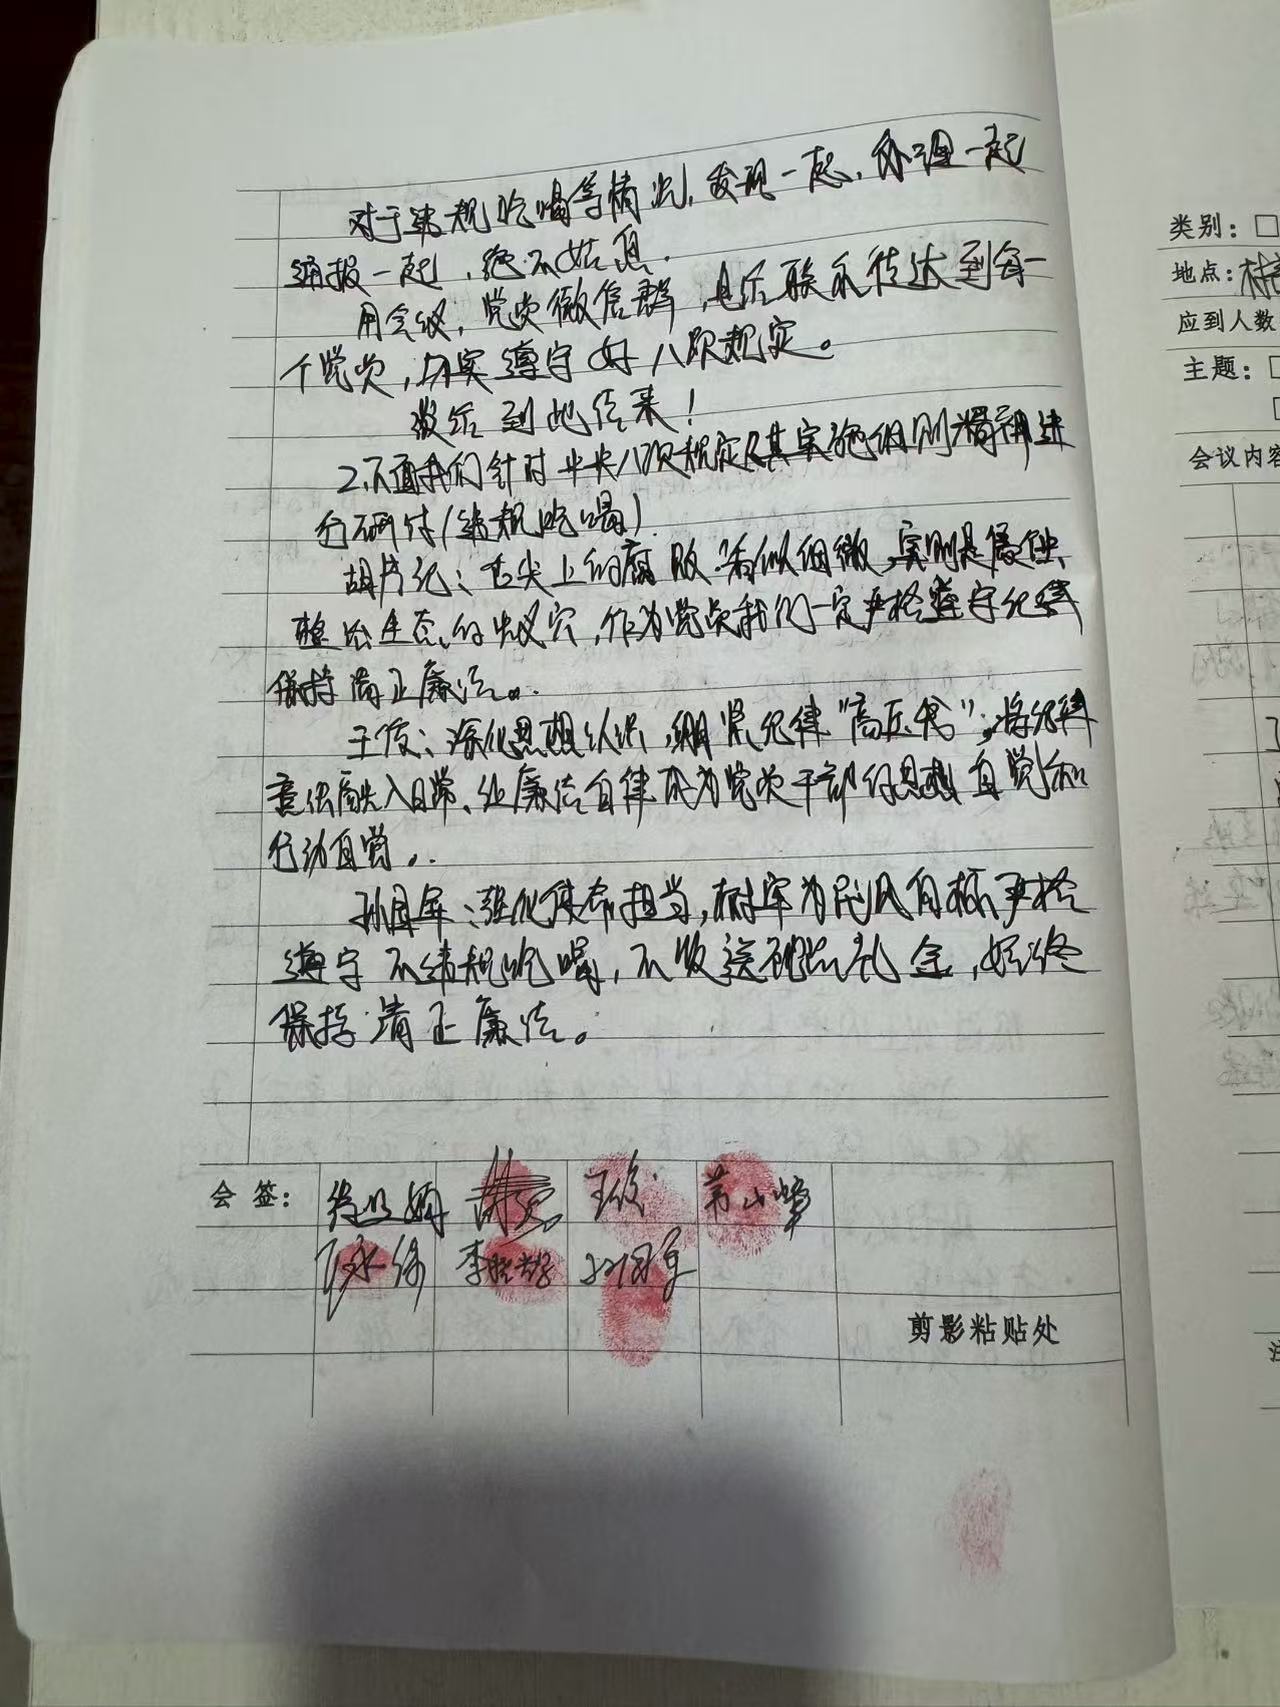 对于违规吃喝等情况,发现一起,办理一起
通报一起,绝不姑息.
用会议,党员微信群,电话联系传达到每一
个党员,切实遵守好八项规定。
报告到此结束!
2.下面我们针对中央八项规定及其实施细则精神进
行研讨(违规吃喝)
胡书记:舌尖上的腐败看似细微,实则是侵蚀
政治生态的蚁穴,作为党员我们一定严格遵守纪律
保持清正廉洁。
王俊:深化思想认识,绷紧纪律"高压线",将纪律
意识融入日常、让廉洁自律成为党员干部的思想自觉和
行动自觉。
孙国军:强化使命担当,树牢为民风向标,严格
遵守不违规吃喝,不收送礼品礼金,始终
保持清正廉洁。
会签: 王俊
孙国军
剪影粘贴处
类别:□
地点:村
应到人数
主题:□
会议内容